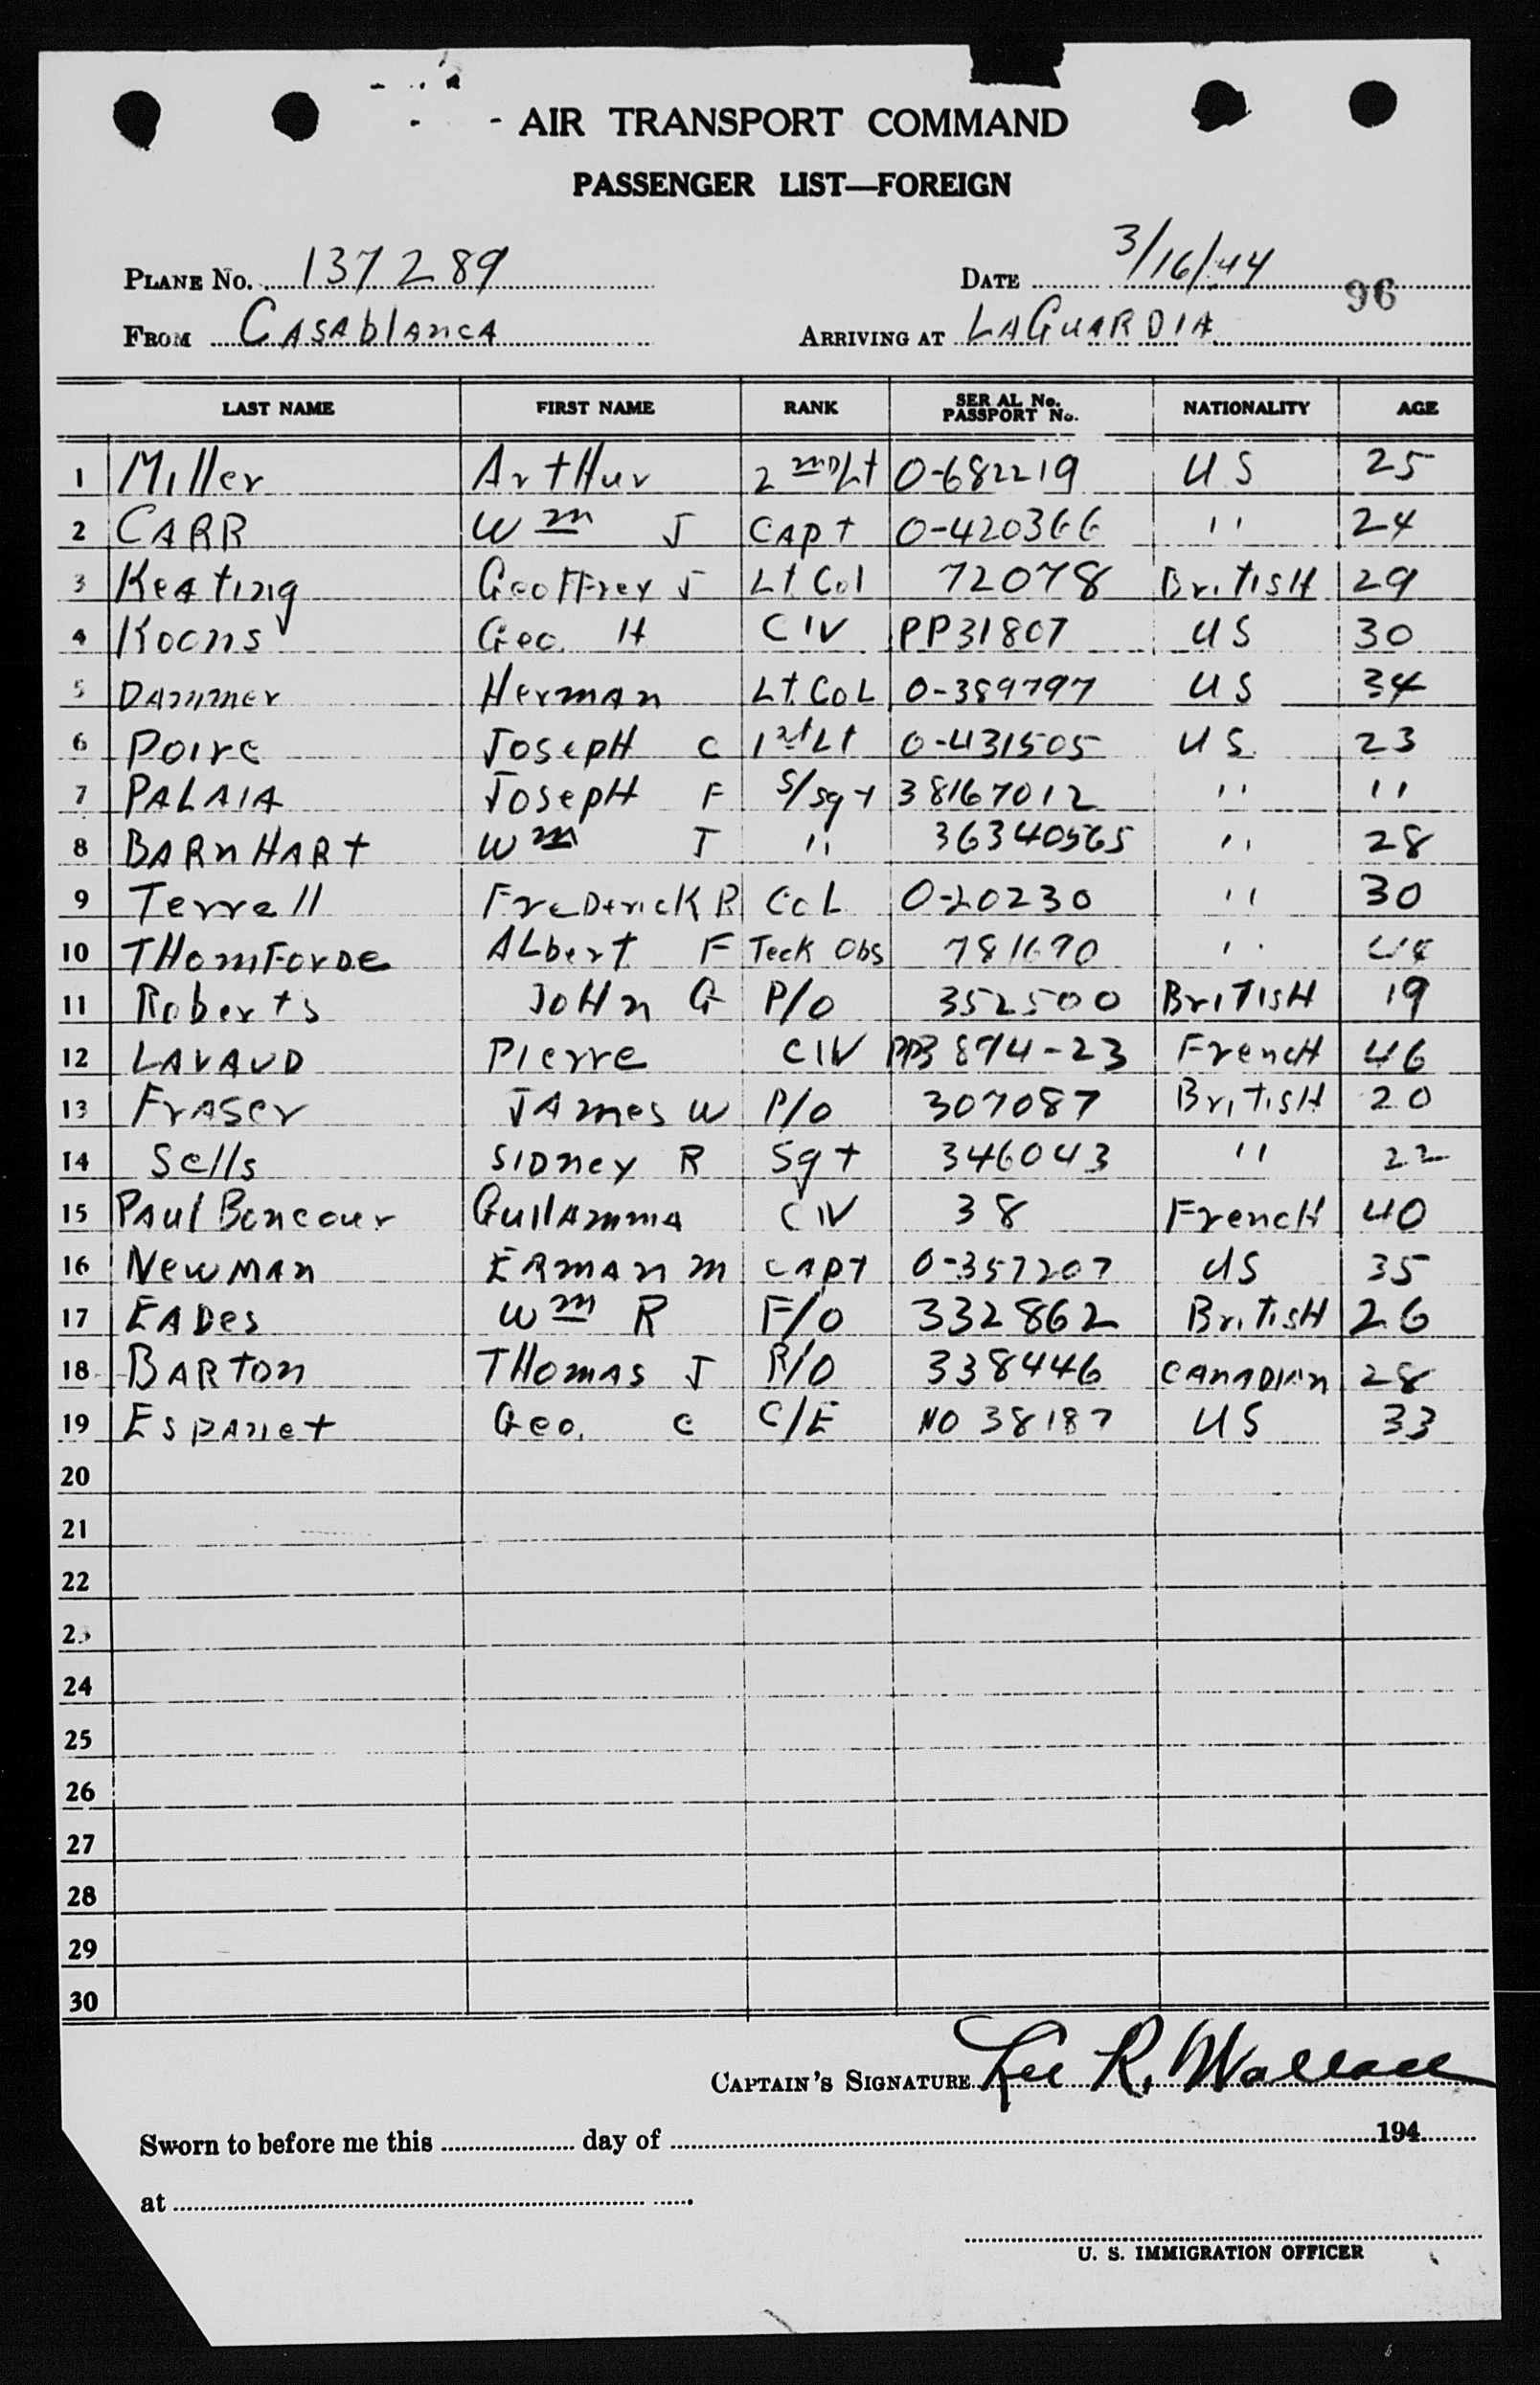 AIR TRANSPORT COMMAND
PASSENGER LIST—FOREIGN
PLANE No. 137289 DATE 3/16/44
96
FROM CASAblANCA ARRIVING AT LAGUARDIA
LAST NAME FIRST NAME RANK SERIAL No. PASSPORT No. NATIONALITY AGE
1 Miller ArtHur 2nd/Lt 0-682219 US 25
2 CARR Wm J CAPt 0-420366 " 24
3 KeAting GeoFFrey J Lt Col 72078 BritisH 29
4 Koons Geo. H CIV PP31807 US 30
5 DAmmer HermAn Lt. CoL 0-389797 US 34
6 Poire JosepH C 1st Lt 0-431505 US 23
7 PALAIA JosepH F S/Sgt 38167012 " "
8 BARnHARt Wm J " 36340565 " 28
9 Terrell FreDerick R CoL 0-20230 " 30
10 THomForDe ALbert F Teck Obs 781690 " 44
11 Roberts JoHn G P/O 352500 BritisH 19
12 LAVAUD Pierre CIV PP3874-23 FrencH 46
13 FrASer JAmes W P/O 307087 BritisH 20
14 Sells SIDney R Sgt 346043 " 22
15 PAul Boncour GuilAmmA CIV 38 FrencH 40
16 NewmAn ERmAn m CAPt 0-357207 US 35
17 EADes Wm R F/O 332862 BritisH 26
18 BARton THomAs J R/O 338446 CANADIAn 28
19 EspAnet Geo. C C/E NO 38187 US 33
20
21
22
23
24
25
26
27
28
29
30
CAPTAIN'S SIGNATURE Lee R. Wallace
Sworn to before me this day of 194
at
U. S. IMMIGRATION OFFICER